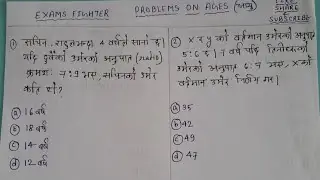 EXAMS FIGHTER
PROBLEMS ON AGES
SHARE
SUBSCRIBE
① सचिन, राहुलभन्दा 4 वर्षले सानो छ।
यदि दुवैको उमेरको अनुपात (ratio)
क्रमशः 7:9 भए, सचिनको उमेर
कति हो?
ⓐ 16 वर्ष
ⓑ 18 वर्ष
ⓒ 14 वर्ष
ⓓ 12 वर्ष
② x र y को वर्तमान उमेरको अनुपात
5:6 छ। 7 वर्ष पछि तिनीहरूको
उमेरको अनुपात 6:7 भए, x को
वर्तमान उमेर
ⓐ 35
ⓑ 42
ⓒ 49
ⓓ 47